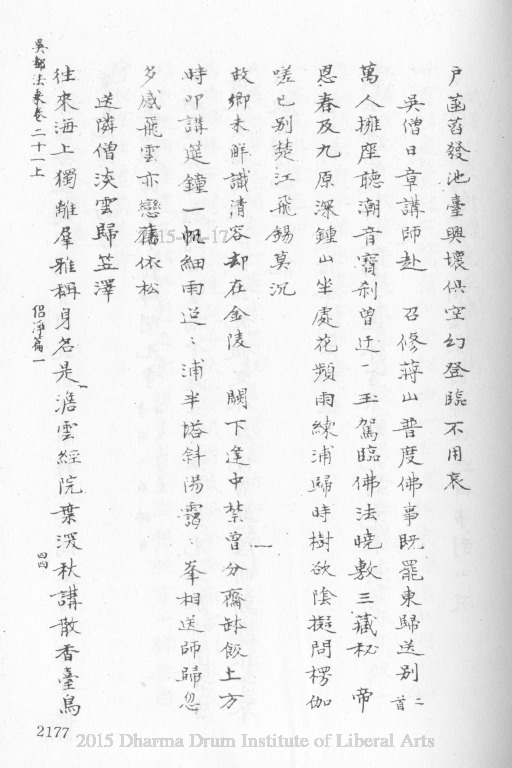 戶菡萏發池臺興壞俱空幻登臨不用哀
吳僧日章講師赴 召修蔣山普度佛事既罷東歸送別二首
萬人擁座聽潮音寶剎曾迂一玉駕臨佛法曉敷三藏秘 帝
恩春及九原深鍾山坐處花頻雨練浦歸時樹欲陰擬問楞伽
嗟已別楚江飛錫莫沉
故鄉未鮮識清容却在金陵 闕下逢中禁曾分齋缽飯上方
時叩講筵鐘一帆細雨迢迢浦半塔斜陽靄靄峯相送師歸忽
多感飛雲亦戀舊依松
送隣僧淡雲歸笠澤
往來海上獨離羣雅稱身名是澹雲經院葉深秋講散香臺鳥
吳都法乘卷二十一上 侶淨篇一 四四
2177
2015-04-17
2015 Dharma Drum Institute of Liberal Arts